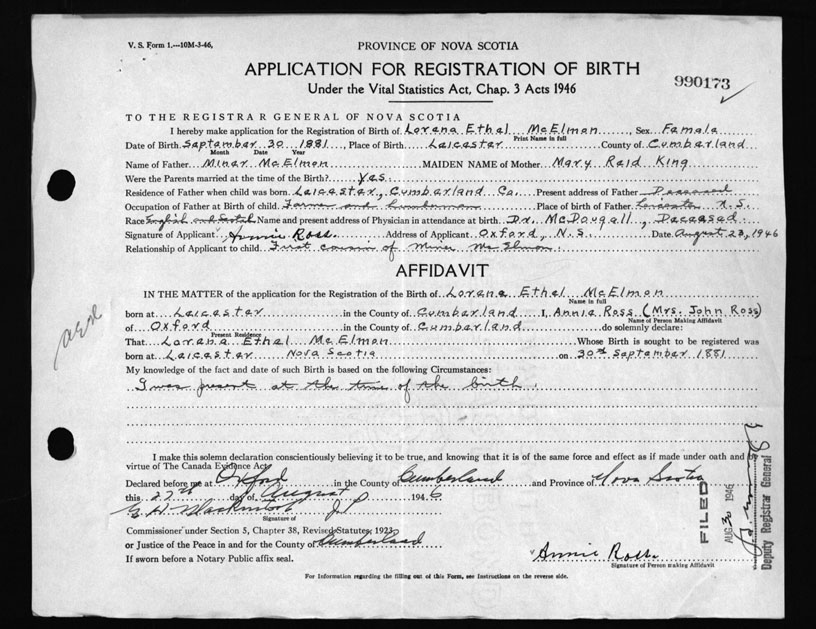 V. S. Form 1.---10M-3-46,
PROVINCE OF NOVA SCOTIA
APPLICATION FOR REGISTRATION OF BIRTH
990173
Under the Vital Statistics Act, Chap. 3 Acts 1946
TO THE REGISTRAR GENERAL OF NOVA SCOTIA
I hereby make application for the Registration of Birth of Lorena Ethel McElmon, Sex Female
Print Name in full
Date of Birth September 30 1881, Place of Birth Leicester County of Cumberland
Month Date Year
Name of Father Miner McElmon MAIDEN NAME of Mother Mary Reid King
Were the Parents married at the time of the Birth? Yes.
Residence of Father when child was born Leicester, Cumberland Co. Present address of Father Deceased
Occupation of Father at Birth of child Farmer and Lumberman Place of birth of Father Leicester N.S.
Race English and Scotch Name and present address of Physician in attendance at birth Dr. McDougall, Deceased.
Signature of Applicant Annie Ross. Address of Applicant Oxford, N.S. Date August 23, 1946
Relationship of Applicant to child First cousin of Miner McElmon.
AFFIDAVIT
IN THE MATTER of the application for the Registration of the Birth of Lorena Ethel McElmon
Name in full
born at Leicester in the County of Cumberland I, Annie Ross (Mrs. John Ross)
Name of Person Making Affidavit
of Oxford in the County of Cumberland do solemnly declare:
Present Residence
That Lorena Ethel McElmon Whose Birth is sought to be registered was
born at Leicester Nova Scotia on 30th September 1881
My knowledge of the fact and date of such Birth is based on the following Circumstances:
I was present at the time of the birth.
I make this solemn declaration conscientiously believing it to be true, and knowing that it is of the same force and effect as if made under oath and by
virtue of The Canada Evidence Act.
Declared before me at Oxford in the County of Cumberland and Province of Nova Scotia
this 27th day of August 1946
G H Mackintosh J P
Signature of
Commissioner under Section 5, Chapter 38, Revised Statutes, 1923
or Justice of the Peace in and for the County of Cumberland
If sworn before a Notary Public affix seal.
Annie Ross.
Signature of Person making Affidavit
For Information regarding the filling out of this Form, see Instructions on the reverse side.
FILED
AUG 30 1946
Deputy Registrar General